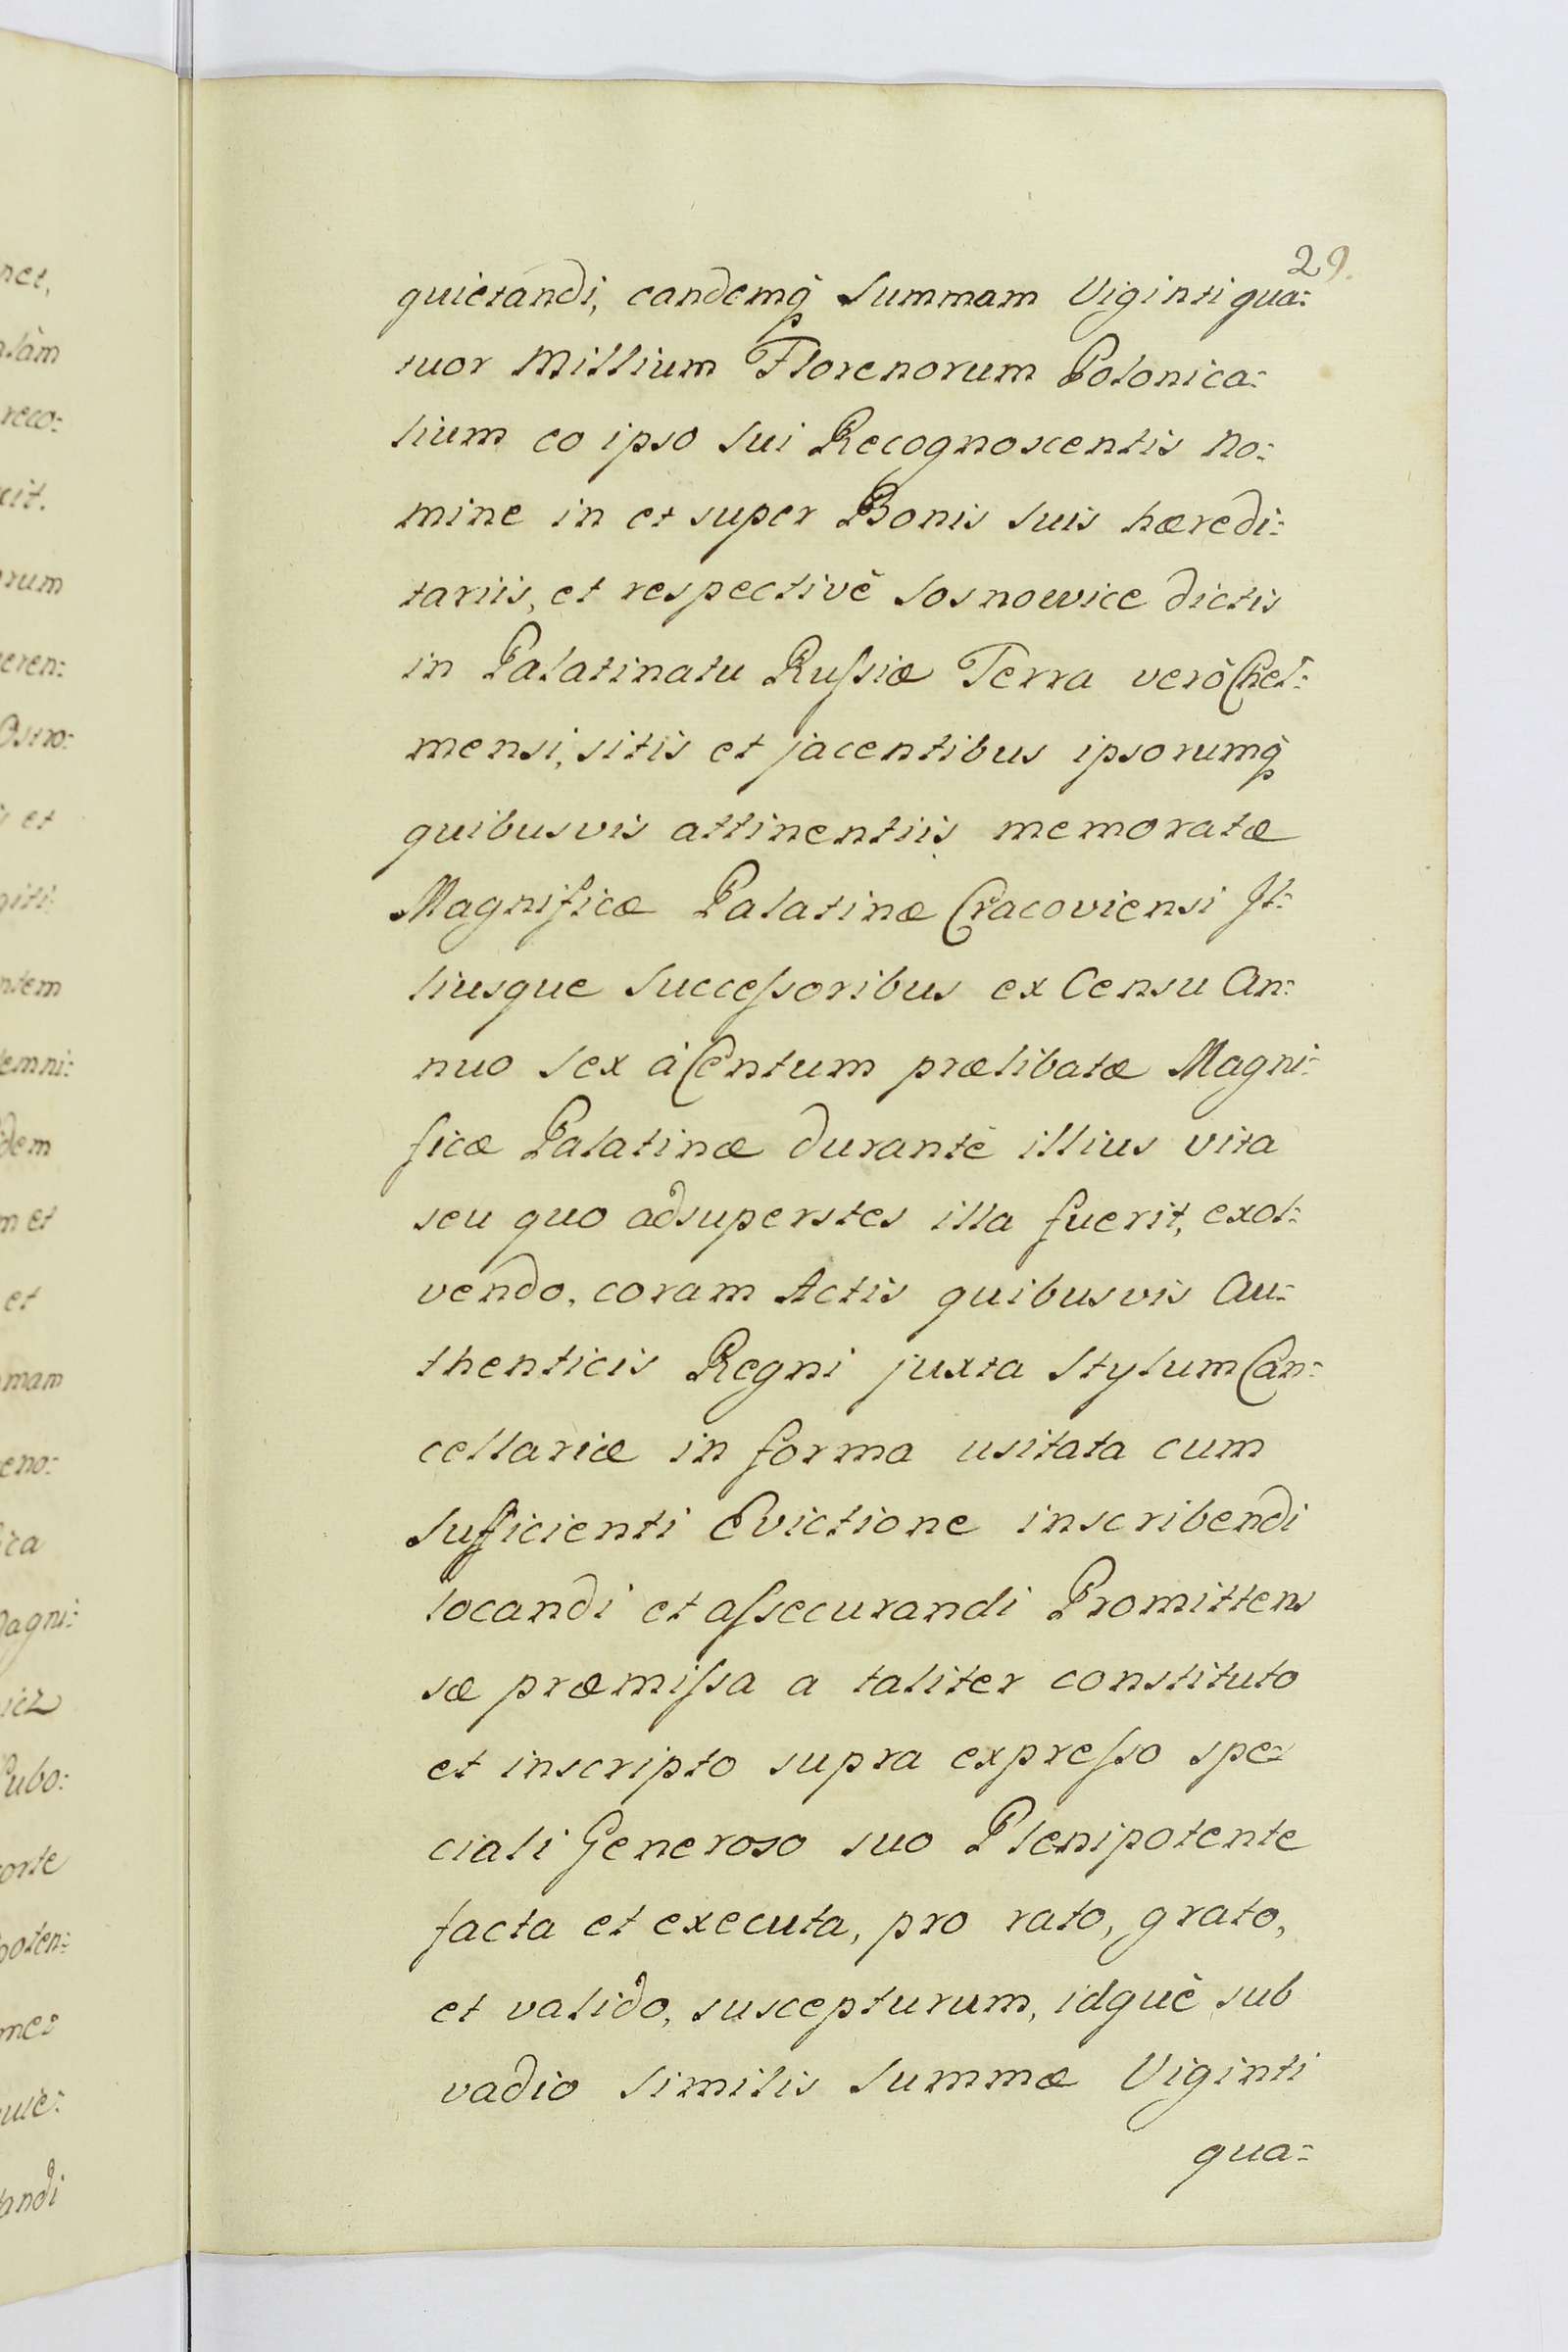 29.
quietandi, eandemq̃ Summam Viginti qua:
tuor Millium Florenorum Polonica:
lium eo ipso sui Recognoscentis no:
mine in et super Bonis suis hæredi:
tariis, et respectivè Sosnowice dictis
in Palatinatu Rußiæ Terra verò Chel:
mensi, sitis et jacentibus ipsorumq̃
quibusvis attinentiis memoratæ
Magnificæ Palatinæ Cracoviensi Il:
liusque Succeßoribus ex Censu An:
nuo Sex à Centum prælibatæ Magni:
ficæ Palatinæ durantè illius vita
seu quo adsuperstes illa fuerit, exol:
vendo, coram Actis quibusvis Au:
thenticis Regni juxta Stylum Can:
cellariæ in forma usitata cum
Sufficienti Evictione inscribendi
locandi et aßecurandi Promittens
sæ præmißa a taliter constituto
et inscripto supra expreßo spe:
ciali Generoso suo Plenipotente
facta et executa, pro rato, grato,
et valido, suscepturum, idquè sub
vadio similis Summæ Viginti
qua: